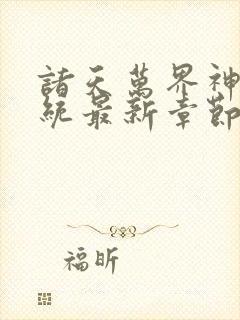 諸天萬界神
統最新章節
福昕